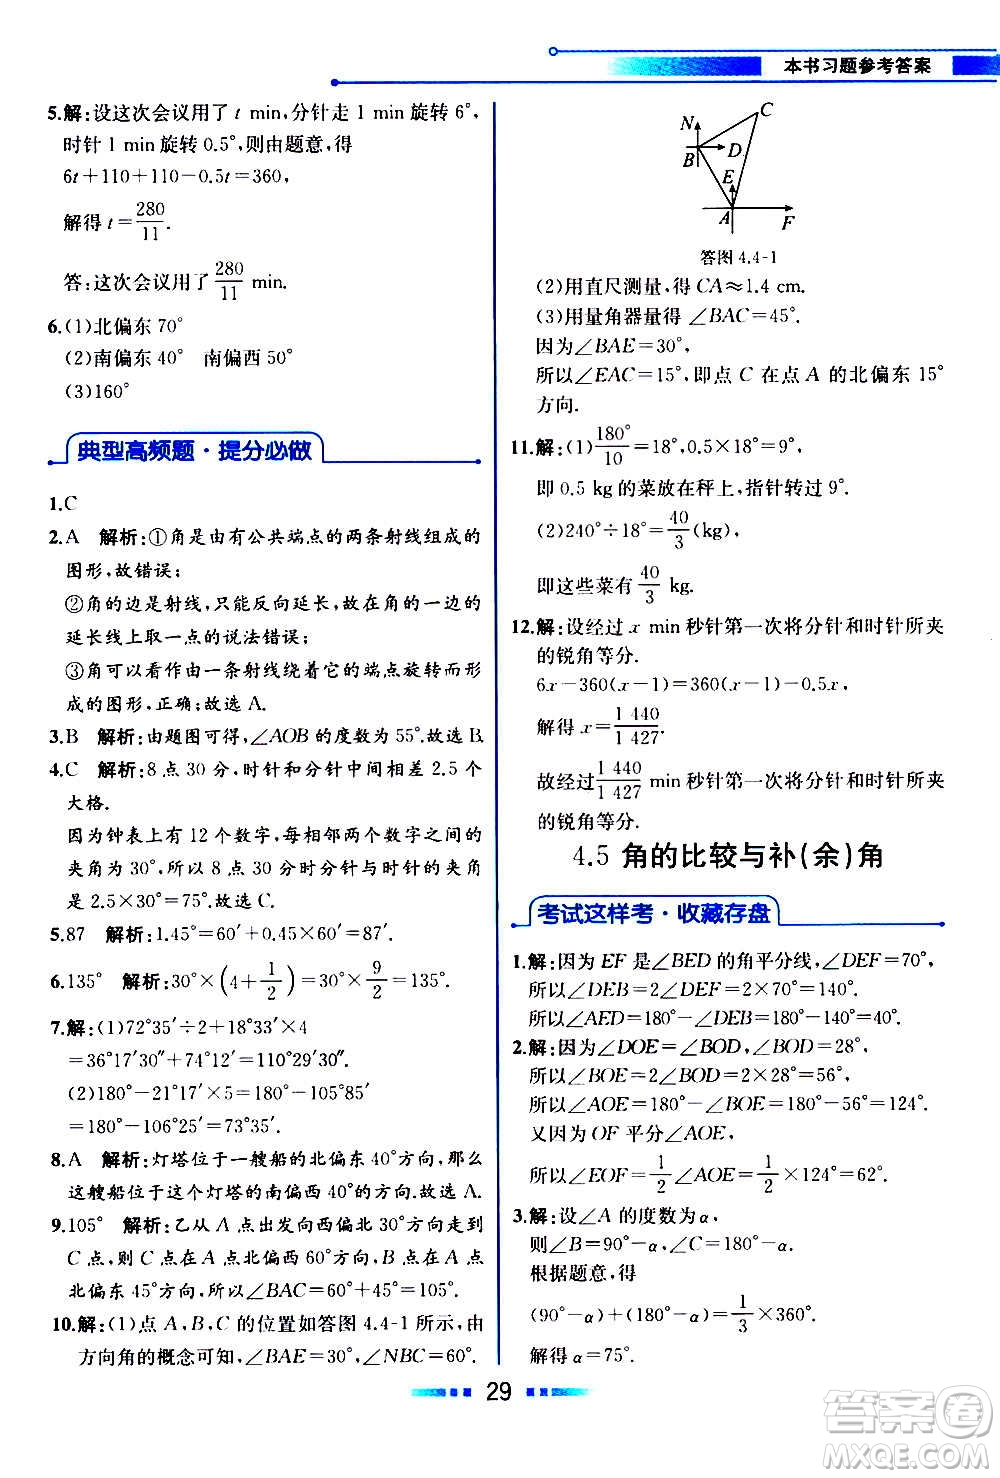 本书习题参考答案
5.解:设这次会议用了 t min,分针走 1 min 旋转 6°,
时针 1 min 旋转 0.5°,则由题意,得
6t+110+110-0.5t=360,
解得 t=280/11.
答:这次会议用了 280/11 min.
6.(1)北偏东 70°
(2)南偏东 40° 南偏西 50°
(3)160°
典型高频题·提分必做
1.C
2.A 解析:①角是由有公共端点的两条射线组成的
图形,故错误;
②角的边是射线,只能反向延长,故在角的一边的
延长线上取一点的说法错误;
③角可以看作由一条射线绕着它的端点旋转而形
成的图形,正确;故选 A.
3.B 解析:由题图可得,∠AOB 的度数为 55°.故选 B.
4.C 解析:8 点 30 分,时针和分针中间相差 2.5 个
大格.
因为钟表上有 12 个数字,每相邻两个数字之间的
夹角为 30°,所以 8 点 30 分时分针与时针的夹角
是 2.5×30°=75°.故选 C.
5.87 解析:1.45°=60′+0.45×60′=87′.
6.135° 解析:30°×(4+1/2)=30°×9/2=135°.
7.解:(1)72°35′÷2+18°33′×4
=36°17′30″+74°12′=110°29′30″.
(2)180°-21°17′×5=180°-105°85′
=180°-106°25′=73°35′.
8.A 解析:灯塔位于一艘船的北偏东 40°方向,那么
这艘船位于这个灯塔的南偏西 40°的方向.故选 A.
9.105° 解析:乙从 A 点出发向西偏北 30°方向走到
C 点,则 C 点在 A 点北偏西 60°方向,B 点在 A 点
北偏东 45°方向,所以∠BAC=60°+45°=105°.
10.解:(1)点 A,B,C 的位置如答图 4.4-1 所示,由
方向角的概念可知,∠BAE=30°,∠NBC=60°.
N
C
B
D
E
A
F
答图 4.4-1
(2)用直尺测量,得 CA≈1.4 cm.
(3)用量角器量得∠BAC=45°.
因为∠BAE=30°,
所以∠EAC=15°,即点 C 在点 A 的北偏东 15°
方向.
11.解:(1)180°/10=18°,0.5×18°=9°,
即 0.5 kg 的菜放在秤上,指针转过 9°.
(2)240°÷18°=40/3(kg),
即这些菜有 40/3 kg.
12.解:设经过 x min 秒针第一次将分针和时针所夹
的锐角等分.
6x-360(x-1)=360(x-1)-0.5x,
解得 x=1 440/1 427.
故经过 1 440/1 427 min 秒针第一次将分针和时针所夹
的锐角等分.
4.5 角的比较与补(余)角
考试这样考·收藏存盘
1.解:因为 EF 是∠BED 的角平分线,∠DEF=70°,
所以∠DEB=2∠DEF=2×70°=140°.
所以∠AED=180°-∠DEB=180°-140°=40°.
2.解:因为∠DOE=∠BOD,∠BOD=28°,
所以∠BOE=2∠BOD=2×28°=56°,
所以∠AOE=180°-∠BOE=180°-56°=124°.
又因为 OF 平分∠AOE,
所以∠EOF=1/2∠AOE=1/2×124°=62°.
3.解:设∠A 的度数为 α,
则∠B=90°-α,∠C=180°-α.
根据题意,得
(90°-α)+(180°-α)=1/3×360°.
解得 α=75°.
29
答案圈
MXQE.COM